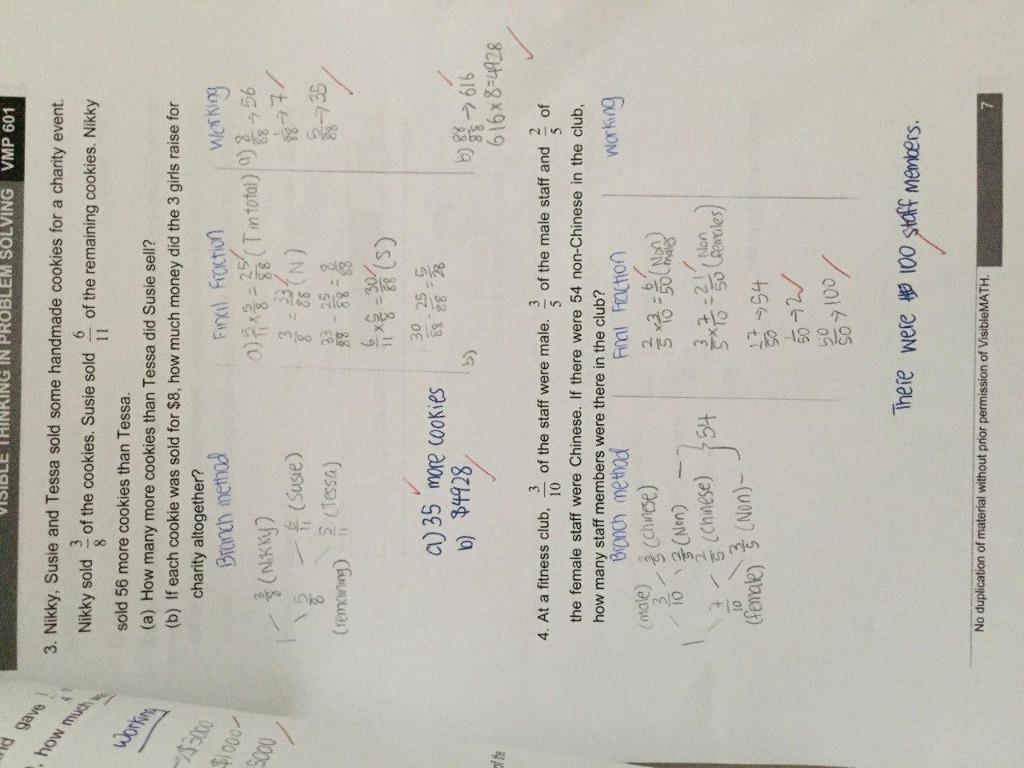 VISIBLE THINKING IN PROBLEM SOLVING VMP 601
3. Nikky, Susie and Tessa sold some handmade cookies for a charity event.
Nikky sold 3/8 of the cookies. Susie sold 6/11 of the remaining cookies. Nikky
sold 56 more cookies than Tessa.
(a) How many more cookies than Tessa did Susie sell?
(b) If each cookie was sold for $8, how much money did the 3 girls raise for
charity altogether?
Branch method
1 - 3/8 (Nikky)
5/8 - 6/11 (Susie)
(remaining) 5/11 (Tessa)
a) 35 more cookies
b) $4928
Final Fraction
a) 5/11 x 5/8 = 25/88 (T in total)
3/8 = 33/88 (N)
33/88 - 25/88 = 8/88
6/11 x 5/8 = 30/88 (S)
30/88 - 25/88 = 5/88
b)
Working
a) 8/88 → 56
1/88 → 7
5/88 → 35
b) 88/88 → 616
616 x 8 = 4928
4. At a fitness club, 3/10 of the staff were male. 3/5 of the male staff and 2/5 of
the female staff were Chinese. If there were 54 non-Chinese in the club,
how many staff members were there in the club?
Branch method
(male)
3/10 - 3/5 (Chinese)
2/5 (Non)
1
7/10 - 2/5 (Chinese)
(female) 3/5 (Non)
} 54
Final Fraction
2/5 x 3/10 = 6/50 (Non males)
3/5 x 7/10 = 21/50 (Non females)
27/50 → 54
1/50 → 2
50/50 → 100
Working
There were 100 staff members.
No duplication of material without prior permission of VisibleMATH.
7
gave
, how much
Working
→ $3000
$1000
5000